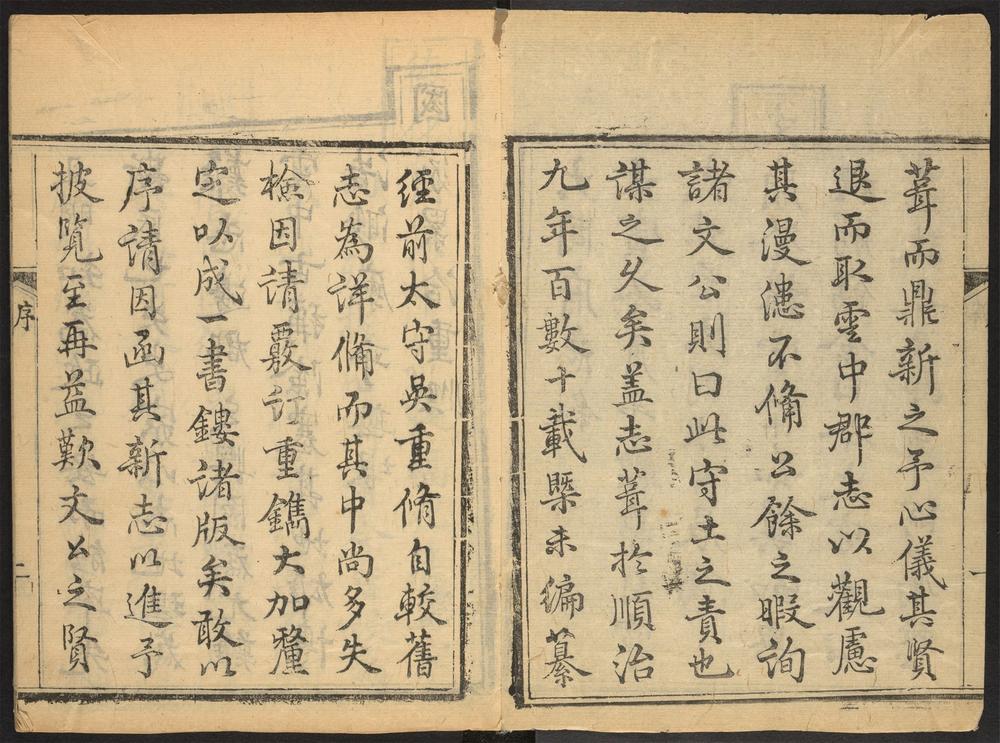 葺而鼎新之予心儀其賢
退而取雲中郡志以觀慮
其漫漶不備公餘之暇詢
諸文公則曰此守土之責也
謀之久矣盖志葺於順治
九年百數十載槩未編纂
經前太守吳重脩自較舊
志為詳備而其中尚多失
檢因請覈訂重鐫大加釐
定以成一書鏤諸版矣敢以
序請因函其新志以進予
披覽至再益歎文公之賢
序
二